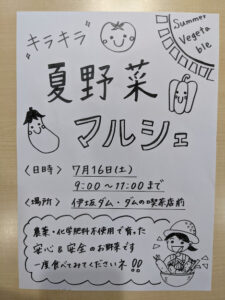 キラキラ
Summer
Vegeta
ble
夏野菜
マルシェ
〈日時〉 7月16日(土)
9:00〜11:00まで
〈場所〉 伊坂ダム・ダムの喫茶店前
農薬・化学肥料不使用で育った
安心&安全のお野菜です
一度食べてみてくださいネ!!